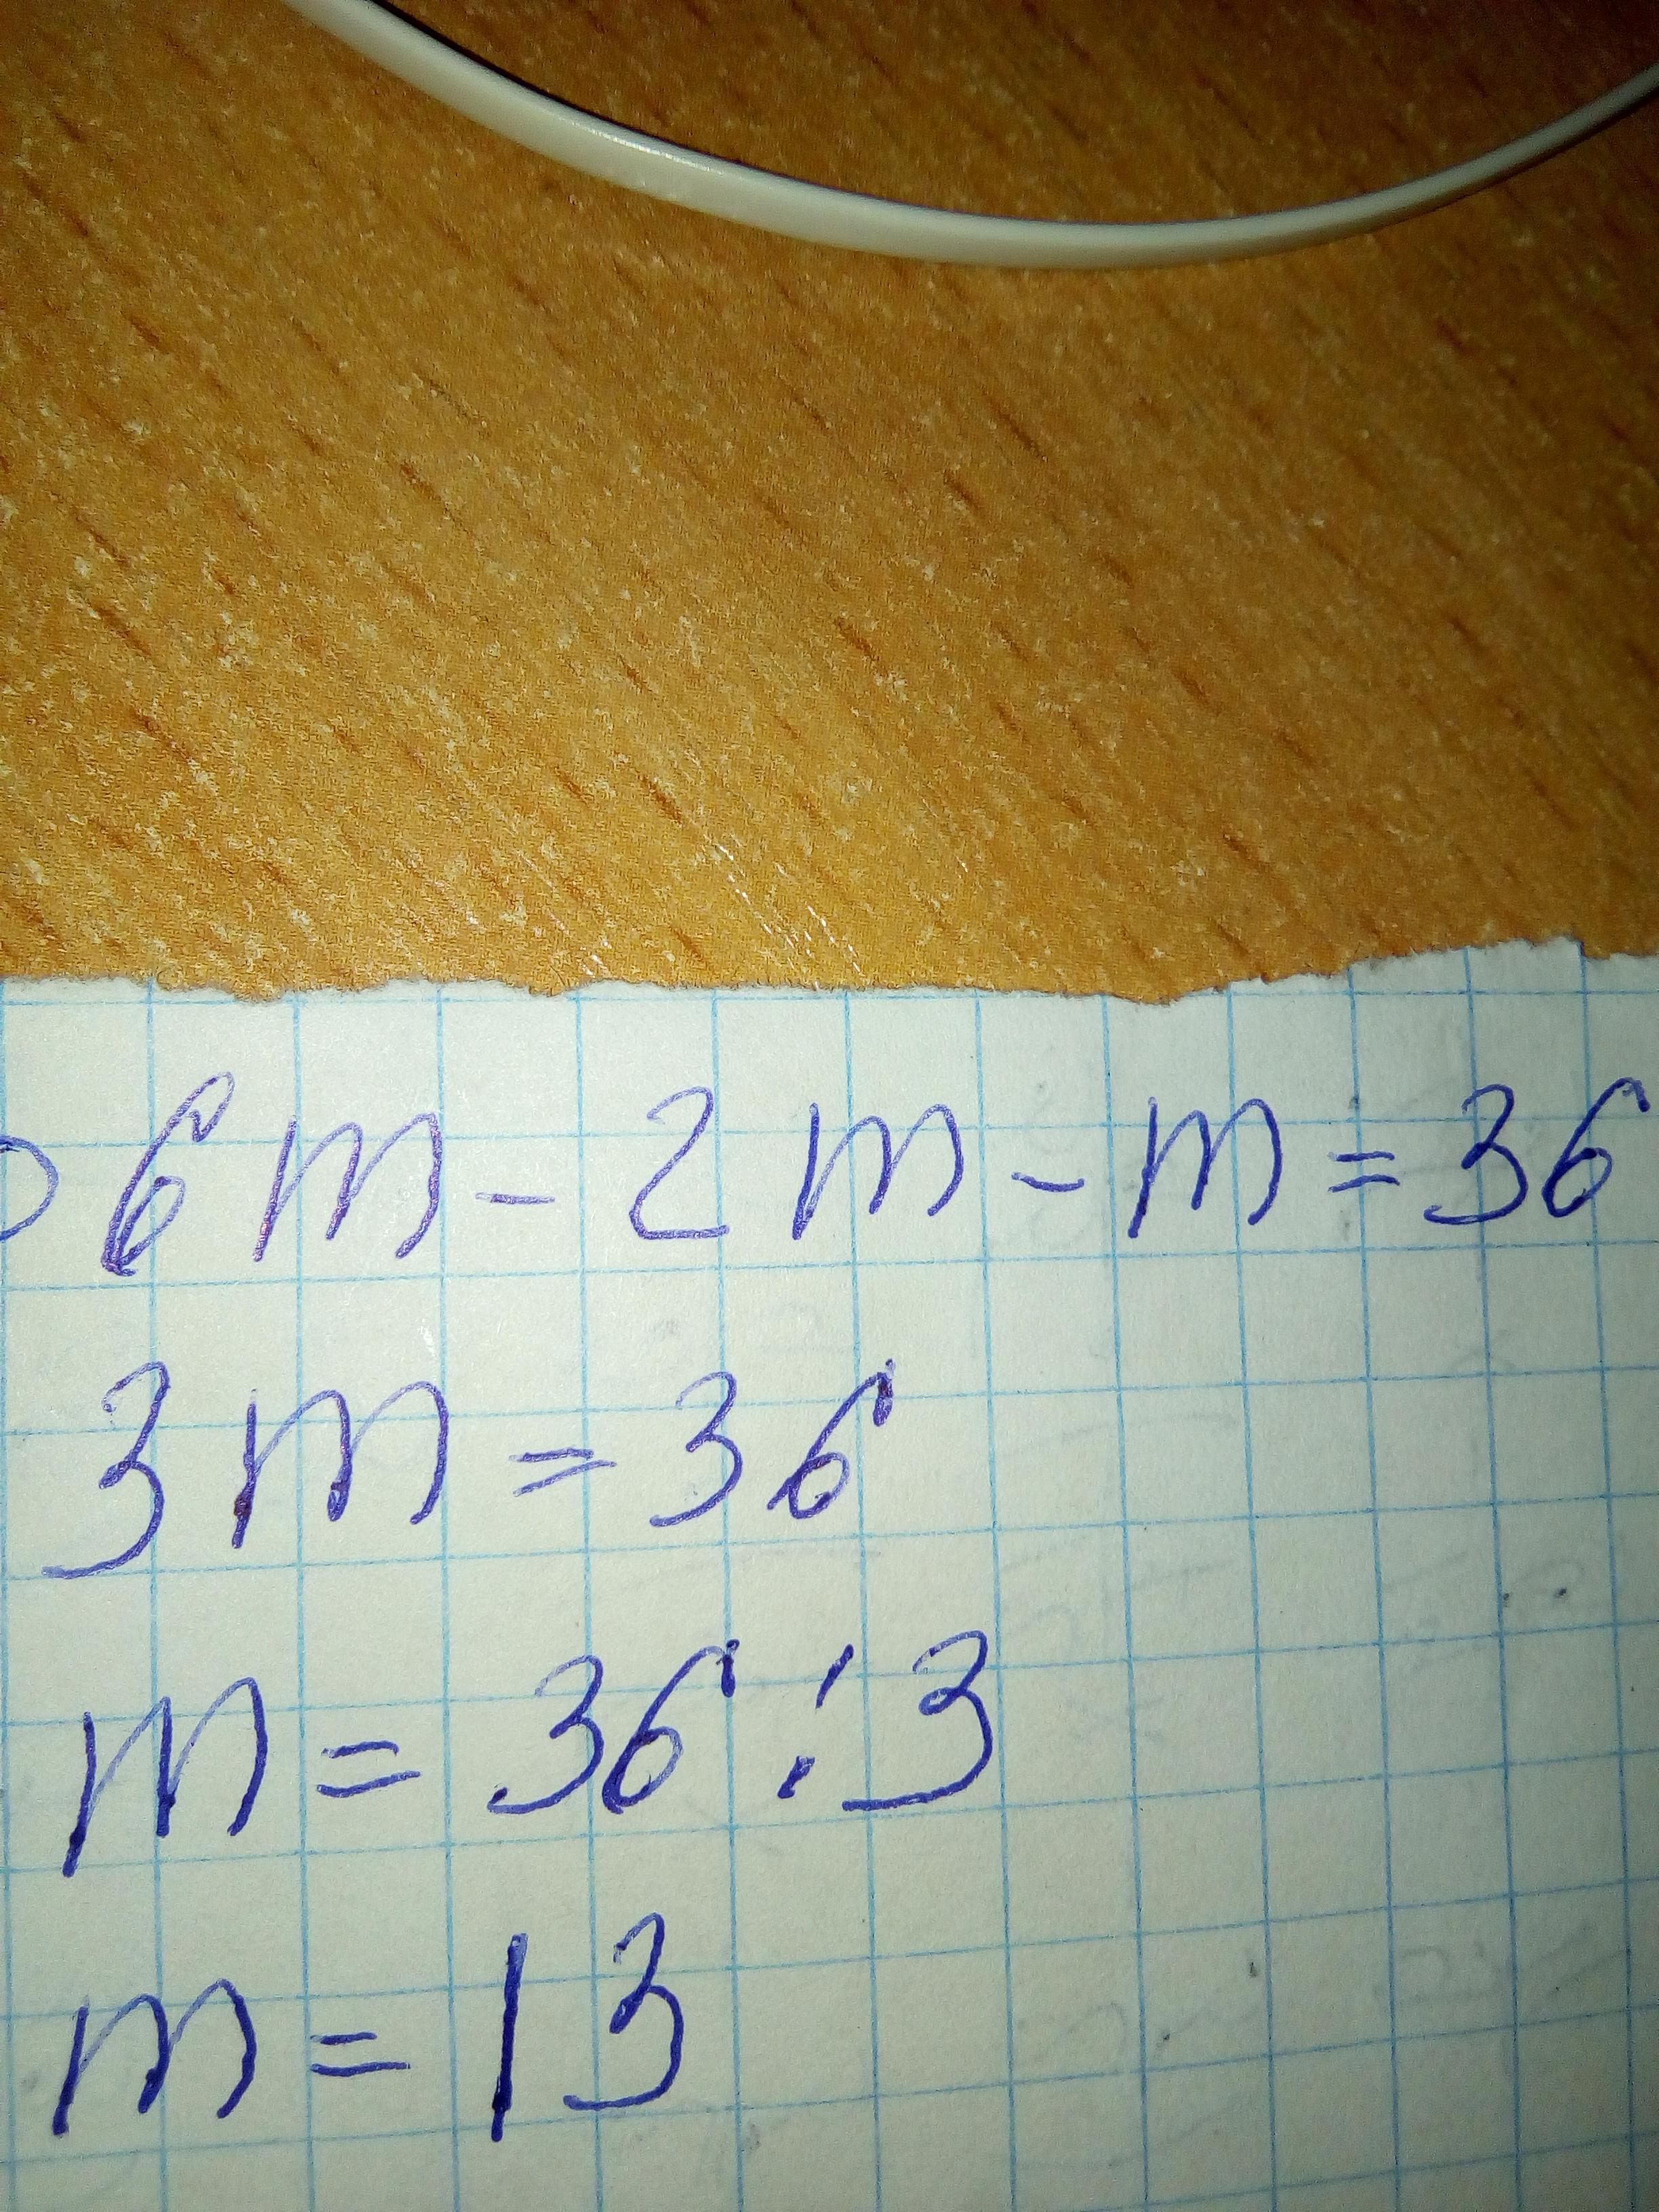 6m - 2m - m = 36
3m = 36
m = 36 : 3
m = 13